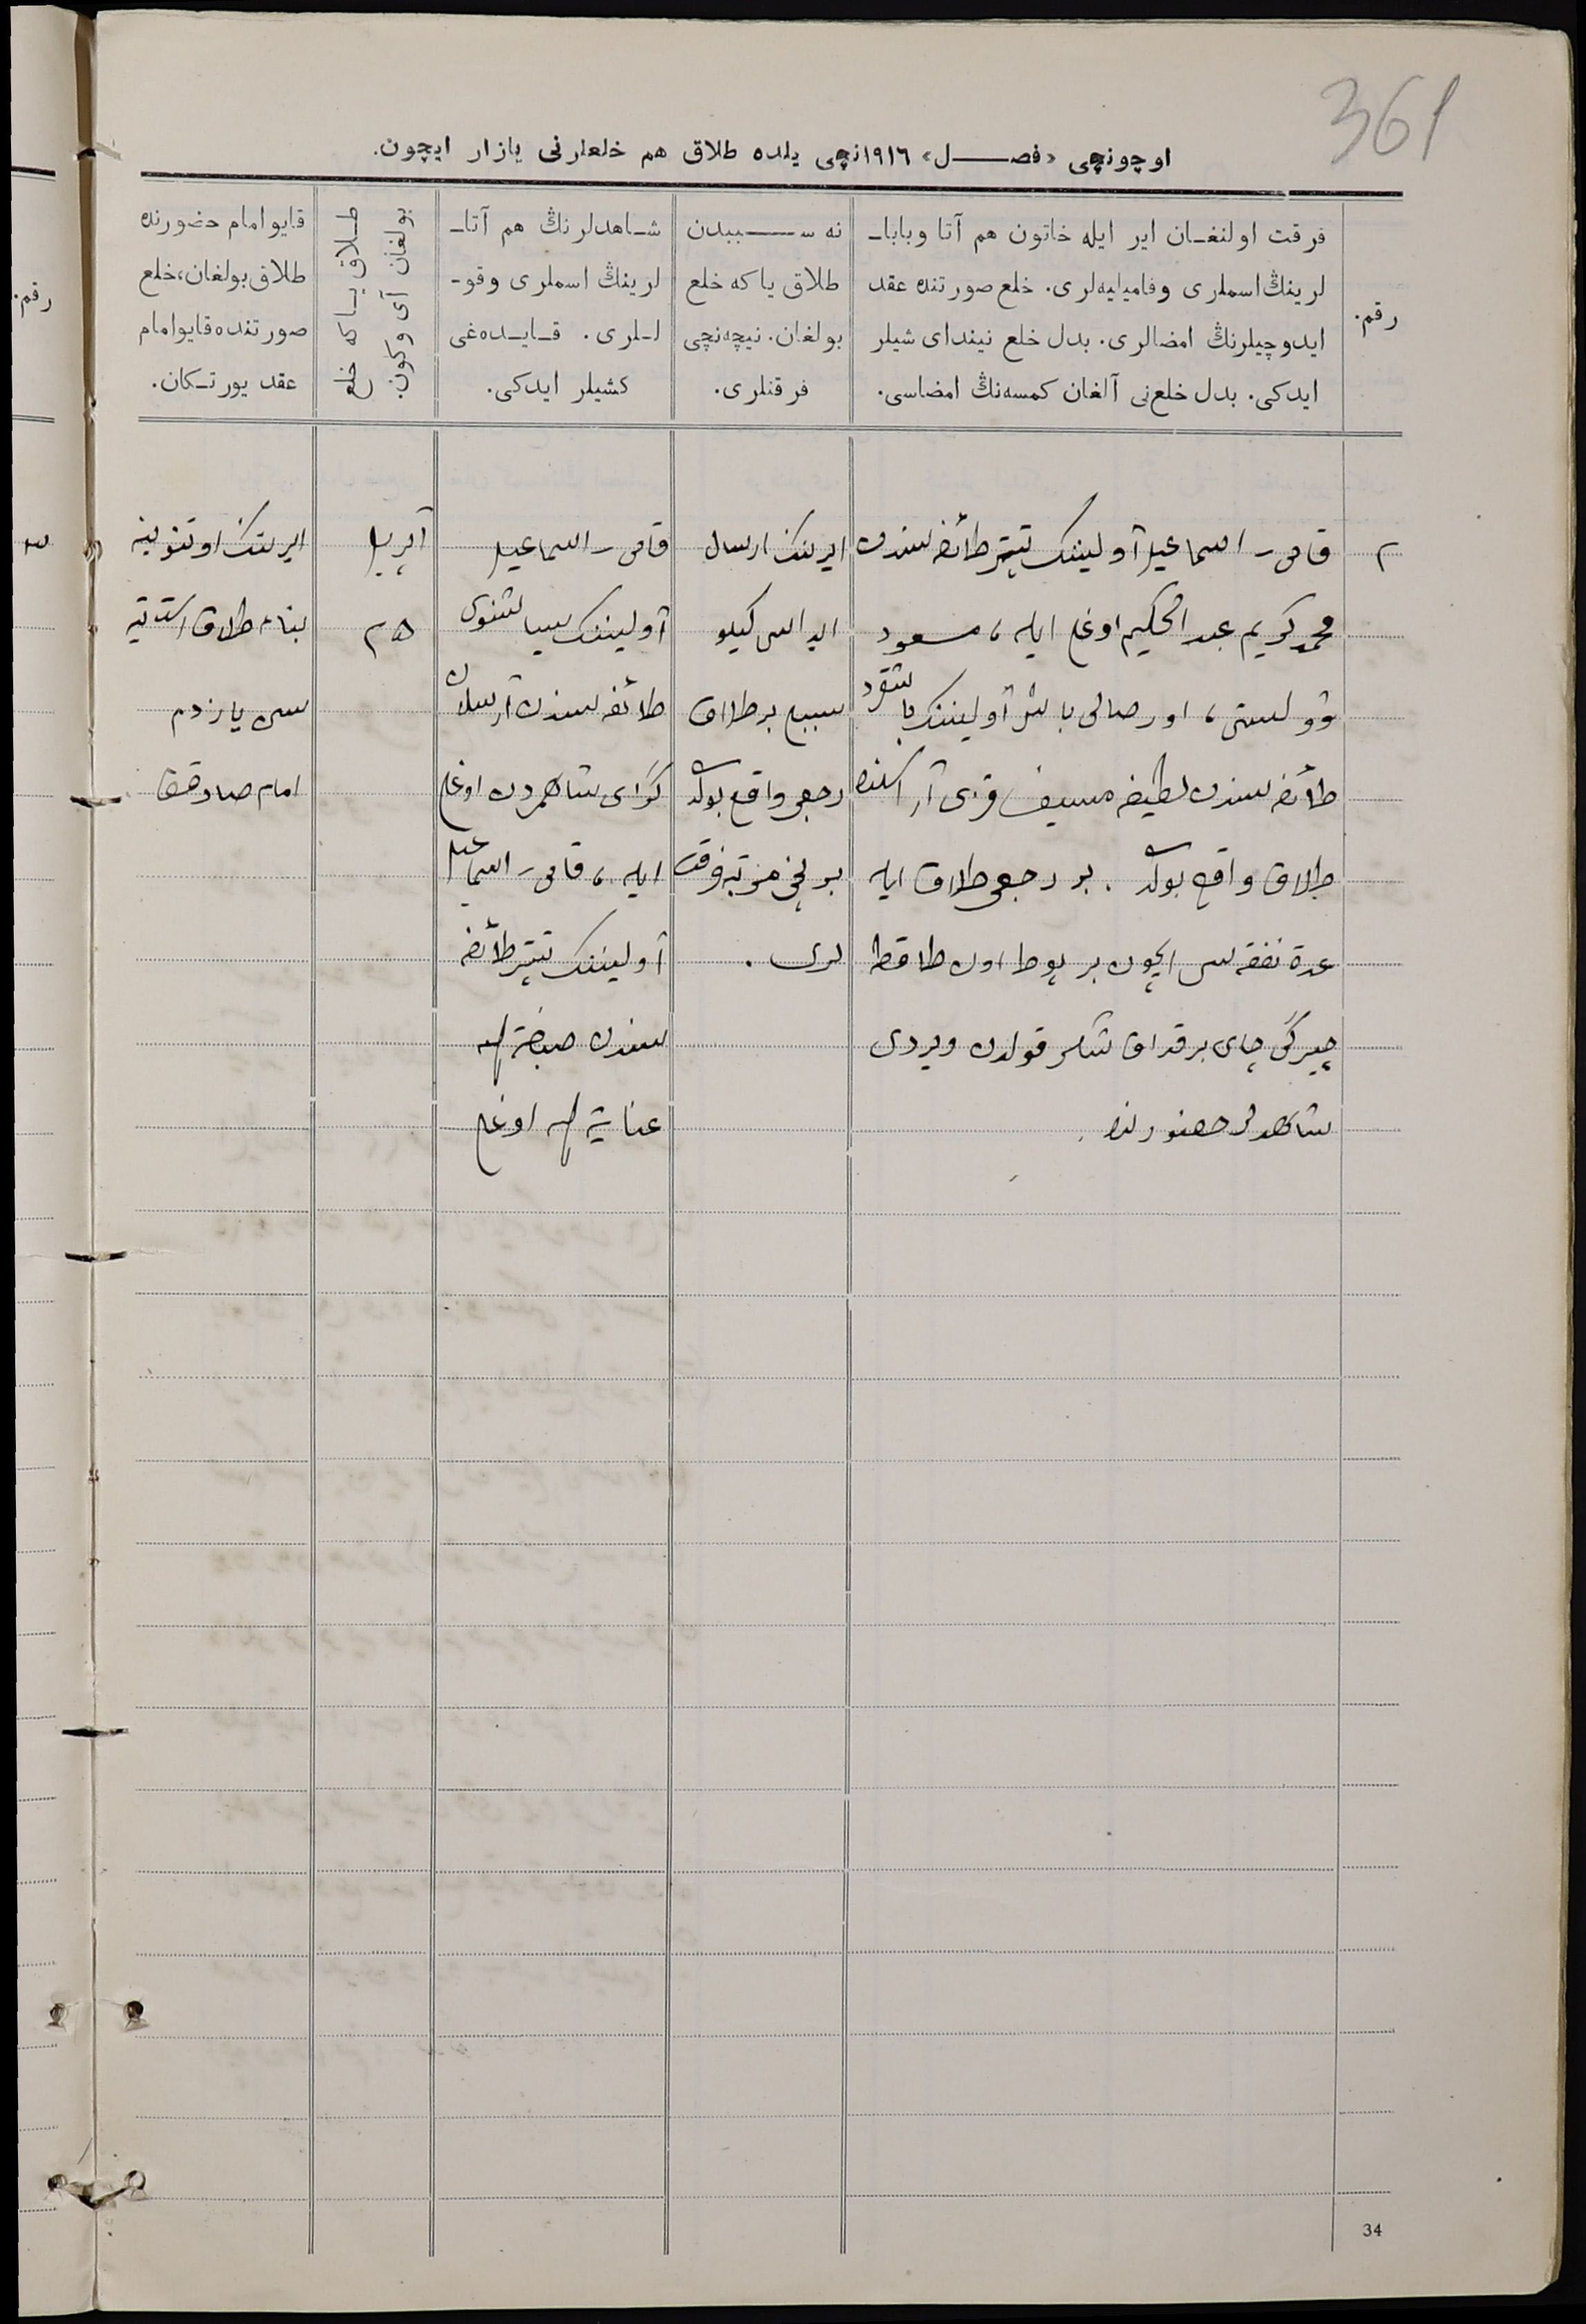 361
اوچونچی «فصـــــل» ١٩١٦نچی یلده طلاق هم خلعلرنی یازار ایچون.
رقم.
فرقت اولنغـان ایر ایله خاتون هم آتا وبابا‌ـ
لرینڭ اسملری وفامیلیه‌لری. خلع صورتنده عقد
ایدوچیلرنڭ امضالری. بدل خلع نیندای شیلر
ایدکی. بدل خلع‌نی آلغان کمسه‌نڭ امضاسی.
نه ســــببدن
طلاق یا که خلع
بولغان. نیچه‌نچی
فرقتلری.
شـاهدلرنڭ هم آتا‌ـ
لرینڭ اسملری وقو‌ـ
لـلری. قـایـده‌غی
کشیلر ایدکی.
طـلاق یـا که خلع
بولغان آی وکون.
قایو امام حضورنده
طلاق بولغان، خلع
صورتنده قایو امام
عقد یورتـکان.
٢
قامی - اسماعیل آولیننک تیپتر طائفه‌سندن
محمد کریم عبد الحکیم اوغلی ایله، مسعود
باشقورد
طائفه‌سندن لطیفه قزی آراسنده
طلاق واقع بولدی. بر رجعی طلاق ایله
عدة نفقه‌سی ایچون بر پوط اون
چیرک چای بر قداق شکر قولدن ویردی
شاهدلر حضورنده.
ایرننک ارسال
سببلی بر طلاق
رجعی واقع بولدی
برنچی مرتبه فرقت
لری.
قامی - اسماعیل
آولیننک
طائفه‌سندن آرسلان
کرای شاهمردن اوغلی
ایله، قامی - اسماعیل
آولیننک تیپتر طائفه
سندن صبغة الله
عنایة الله اوغلی
آپریل
٢٥
ایرننک اوتنوینه
بناء طلاق
سن یازدم
امام صادقف
رقم.
٣
34